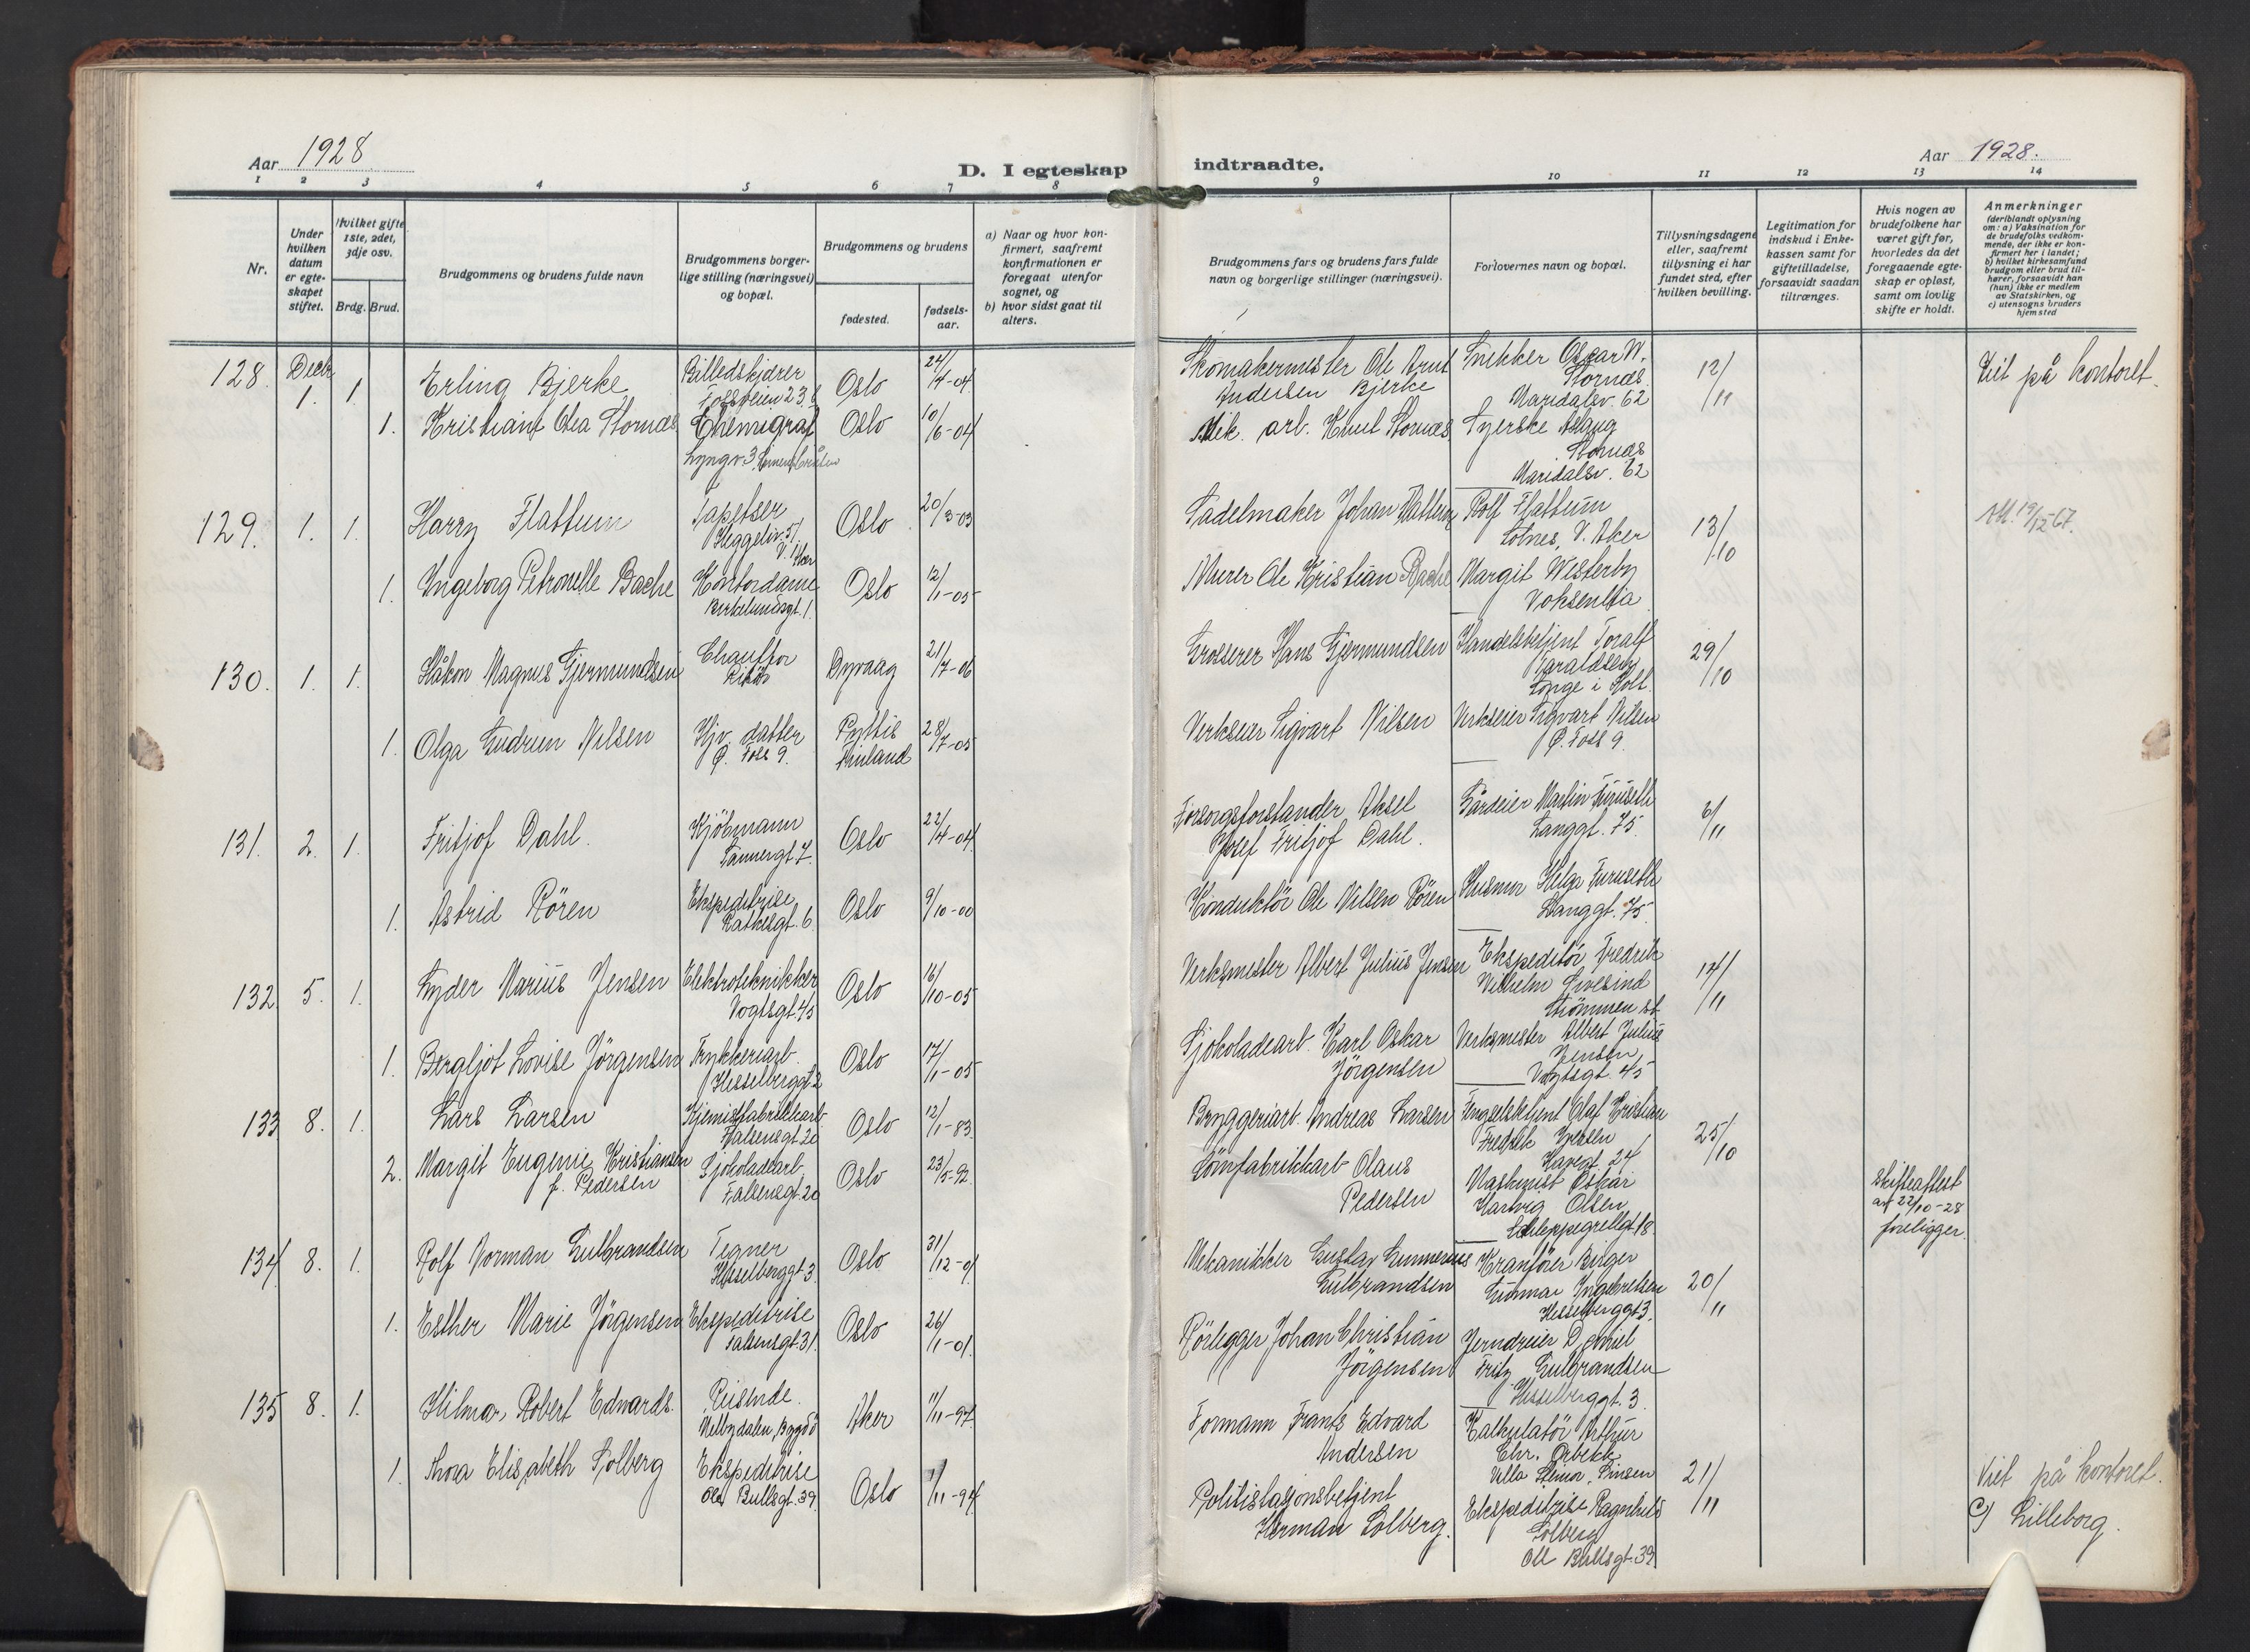 Aar 1928
D. I egteskap indtraadte.
Aar 1928.
1 2 3 4 5 6 7 8 9 10 11 12 13 14
Nr.
Under hvilken datum er egteskapet stiftet.
Hvilket gifte 1ste, 2det, 3dje osv.
Brdg. Brud.
Brudgommens og brudens fulde navn
Brudgommens borgerlige stilling (næringsvei) og bopæl.
Brudgommens og brudens
fødested.
fødselsaar.
a) Naar og hvor konfirmert, saafremt konfirmationen er foregaat utenfor sognet, og
b) hvor sidst gaat til alters.
Brudgommens fars og brudens fars fulde navn og borgerlige stillinger (næringsvei).
Forlovernes navn og bopæl.
Tillysningsdagene eller, saafremt tillysning ei har fundet sted, efter hvilken bevilling.
Legitimation for indskud i Enkekassen samt for giftetilladelse, forsaavidt saadan tiltrænges.
Hvis nogen av brudefolkene har været gift før, hvorledes da det foregaaende egteskap er opløst, samt om lovlig skifte er holdt.
Anmerkninger (deriblandt oplysning om: a) Vaksination for de brudefolks vedkommende, der ikke er konfirmert her i landet; b) hvilket kirkesamfund brudgom eller brud tilhører, forsaavidt han (hun) ikke er medlem av Statskirken, og c) utensogns bruders hjemsted
128. Decbr 1. 1 Erling Bjerke Billedskjærer Fossveien 23 Oslo 24/7-04 Skomakermester Ole Arnt Andersen Bjerke Snekker Oscar W. Stornæs Maridalsv. 62 12/11 Viet på kontoret.
1. Kristiane Olea Stornæs Chemigraf Lyngv. 3 Oslo 10/6-04 Mek. arb. Knut Stornæs Syerske Aslaug Stornæs Maridalsv. 62
129. 1. 1. Harry Flattum Tapetser Heggeliv. 51 V. Aker Oslo 20/3-03 Sadelmaker Johan Flattum Rolf Flattum Solnes, V. Aker 13/10
1. Ingeborg Petronelle Bache Kontordame Birkelundsgt. 1 Oslo 12/1-05 Murer Ole Kristian Bache Margit Westerby Voksenlia
130. 1. 1. Håkon Magnus Gjermundsen Chauffør Risör Dypvaag 21/7-06 Grosserer Hans Gjermundsen Handelsbetjent Toralf Haraldsen Songe i Holt. 29/10
1. Olga Gudrun Nilsen Hjv. datter Ø. Foss 9. Pyttis Finland 28/7-05 Verkseier Sigvart Nilsen Verkseier Sigvart Nilsen Ø. Foss 9.
131. 2. 1. Fritjof Dahl. Kjöbmann Sannergt. 7. Oslo 22/4-04. Forsorgsforstander Aksel Josef Fritjof Dahl. Gårdeier Martin Furuseth Langgt. 75. 6/11
1. Astrid Rören Ekspeditrise Rathkesgt. 6 Oslo 9/10-00 Konduktör Ole Nilsen Rören Husmor Helga Furuseth Langgt. 75
132 5. 1. Lyder Marius Jensen Elektrotekniker Vogtsgt. 45 Oslo 16/10-05 Verksmester Albert Julius Jensen Ekspeditör Fredrik Vilhelm Strömmen st. 14/11
1. Bergljot Lovise Jörgensen Trykkeriarb. Hesselberggt. 2 Oslo 17/1-05 Sjokoladearb. Karl Oskar Jörgensen Verksmester Albert Julius Jensen, Vogtsgt. 45
133 8. 1. Lars Larsen Kjemisk fabrikkarb. Falsensgt. 20 Oslo 12/1-83. Bryggeriarb. Andreas Larsen Fengselsbetjent Olaf Kristian Fredrik Havegt. 24 25/10
2. Margit Eugenie Kristiansen f. Pedersen Sjokoladearb. Falsensgt. 20 Oslo 23/5-92 Sömfabrikkarb Olaus Pedersen Maskinist Oskar Hartvig Olsen Schleppegrellgt 18. Skifteattest av 22/10-28 foreligger.
134 8. 1. Rolf Norman Gulbrandsen Tegner Hesselberggt. 3 Oslo 31/12-01 Mekanikker Gustav Gunnerius Gulbrandsen Kranförer Birger Gunnar Ingebretsen Hesselberggt 3. 20/11
1. Esther Marie Jörgensen Ekspeditrise Falsensgt. 31. Oslo 26/1-01. Rörlegger Johan Christian Jörgensen Jerndreier Daniel Fritz Gulbrandsen Hesselberggt. 3
135 8. 1. Hilmar Robert Edvards. Reisende. Bygdö Aker 11/11-97 Formann Frants Edvard Andersen Kalkulatör Arthur Chr. Orbekk Villa Sinsen 21/11 Viet på kontoret.
1. Thora Elisabeth Solberg Ekspeditrise Ole Bullsgt. 39. Oslo 11-94. Politistasjonsbetjent Herman Solberg. Ekspeditrise Ragnhild Solberg Ole Bullsgt. 39. c) Lilleborg.